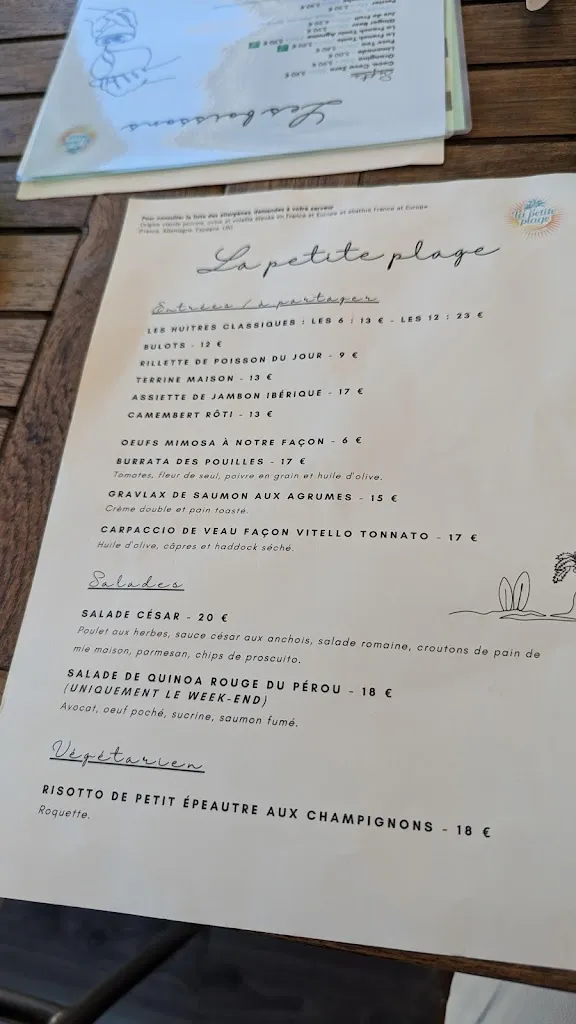 Les boissons
Pour consulter la liste des allergènes demandez à votre serveur
La petite plage
La petite plage
Entrées / à partager
LES HUITRES CLASSIQUES : LES 6 : 13 € - LES 12 : 23 €
BULOTS - 12 €
RILLETTE DE POISSON DU JOUR - 9 €
TERRINE MAISON - 13 €
ASSIETTE DE JAMBON IBÉRIQUE - 17 €
CAMEMBERT RÔTI - 13 €
OEUFS MIMOSA À NOTRE FAÇON - 6 €
BURRATA DES POUILLES - 17 €
Tomates, fleur de seul, poivre en grain et huile d'olive.
GRAVLAX DE SAUMON AUX AGRUMES - 15 €
Crème double et pain toasté.
CARPACCIO DE VEAU FAÇON VITELLO TONNATO - 17 €
Huile d'olive, câpres et haddock séché.
Salades
SALADE CÉSAR - 20 €
Poulet aux herbes, sauce césar aux anchois, salade romaine, croutons de pain de
mie maison, parmesan, chips de proscuito.
SALADE DE QUINOA ROUGE DU PÉROU - 18 €
(UNIQUEMENT LE WEEK-END)
Avocat, oeuf poché, sucrine, saumon fumé.
Végétarien
RISOTTO DE PETIT ÉPEAUTRE AUX CHAMPIGNONS - 18 €
Roquette.